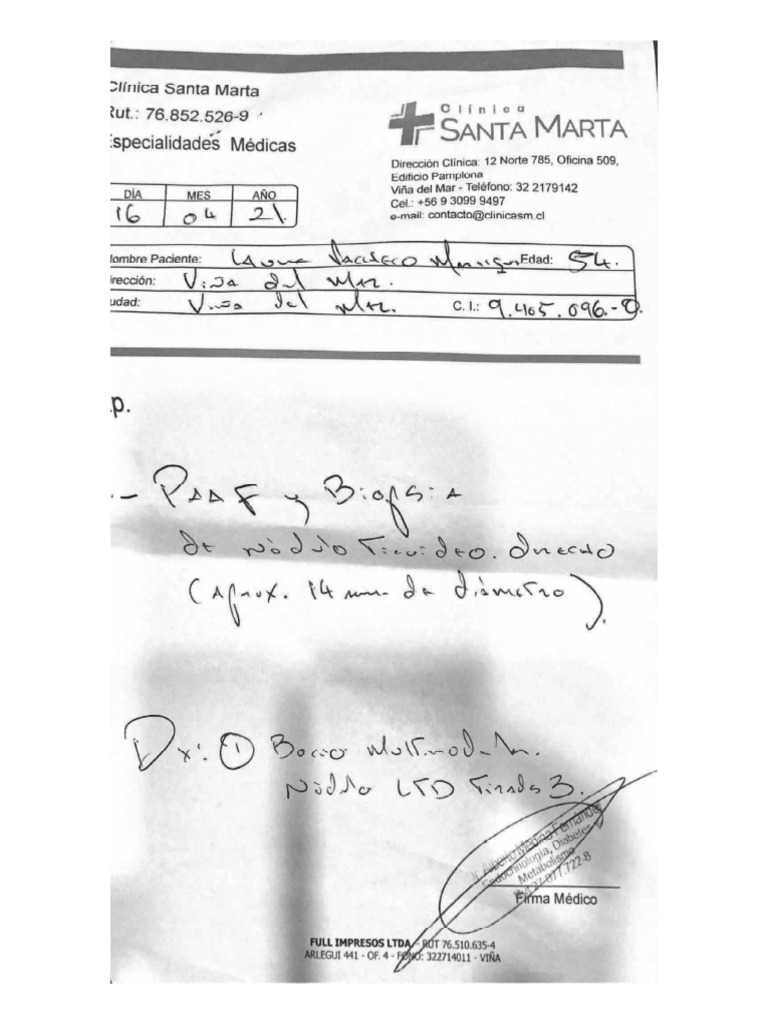 Clínica Santa Marta
Rut.: 76.852.526-9
Especialidades Médicas
Clínica
SANTA MARTA
Dirección Clínica: 12 Norte 785, Oficina 509,
Edificio Pamplona
Viña del Mar - Teléfono: 32 2179142
Cel.: +56 9 3099 9497
e-mail: contacto@clinicasm.cl
DÍA MES AÑO
16 04 21.
Nombre Paciente: Pacheco Edad: 54.
irección: Viña del Mar.
udad: Viña del Mar. C. I.: 9.465.096.-
p.
.- PAAF y Biopsia
de nódulo Tiroideo. derecho
(Aprox. 14 mm de diámetro).
Dx: ① Bocio Multinodular.
Nódulo LTD Tirads 3.
Dr. Alberto Medina Fernández
Endocrinología, Diabetes y
Metabolismo
27.077.722-8
Firma Médico
FULL IMPRESOS LTDA. - RUT 76.510.635-4
ARLEGUI 441 - OF. 4 - FONO: 322714011 - VIÑA